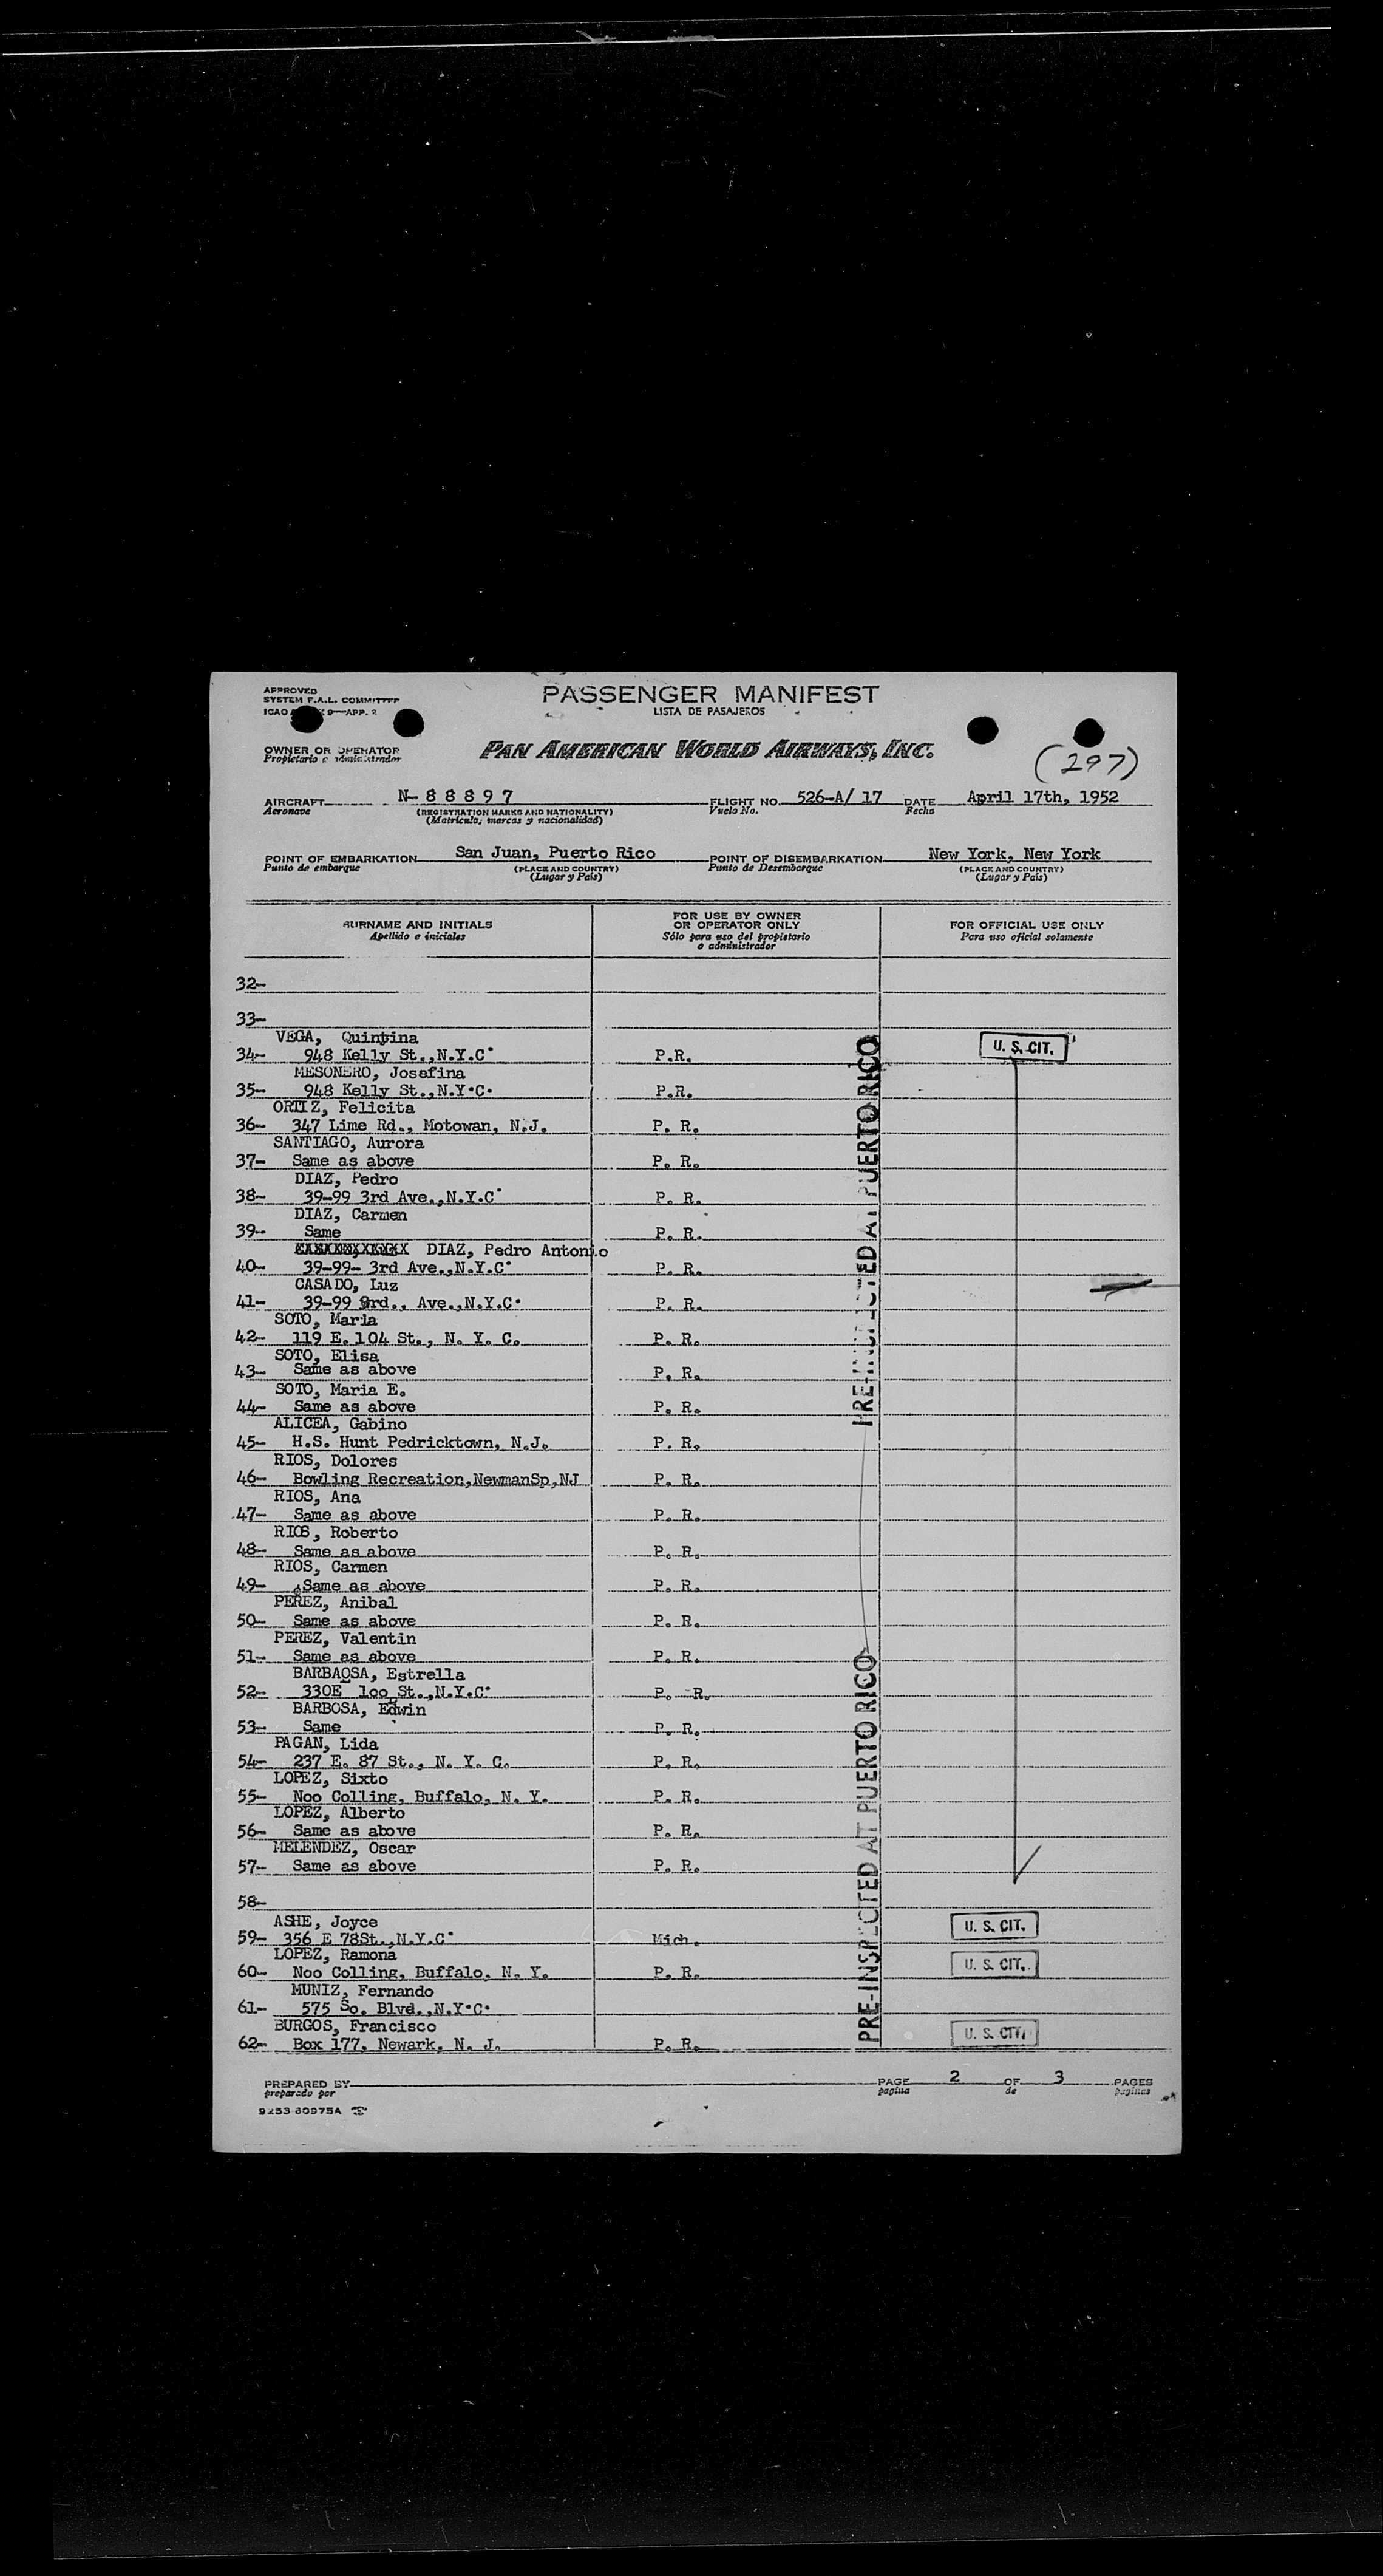 APPROVED
SYSTEM F.A.L. COMMITTEE
ICAO 9—APP. 2
PASSENGER MANIFEST
LISTA DE PASAJEROS
OWNER OR OPERATOR
Propietario o administrador
PAN AMERICAN WORLD AIRWAYS, INC.
(297)
AIRCRAFT N-88897 FLIGHT NO. 526-A/ 17 DATE April 17th, 1952
Aeronave (REGISTRATION MARKS AND NATIONALITY) Vuelo No. Fecha
(Matrícula, marcas y nacionalidad)
POINT OF EMBARKATION San Juan, Puerto Rico POINT OF DISEMBARKATION New York, New York
Punto de embarque (PLACE AND COUNTRY) Punto de Desembarque (PLACE AND COUNTRY)
(Lugar y País) (Lugar y País)
SURNAME AND INITIALS
Apellido e iniciales
FOR USE BY OWNER
OR OPERATOR ONLY
Sólo para uso del propietario
o administrador
FOR OFFICIAL USE ONLY
Para uso oficial solamente
32-
33-
VEGA, Quintina
34- 948 Kelly St.,N.Y.C. P.R. U. S. CIT.
MESONERO, Josefina
35- 948 Kelly St.,N.Y.C. P.R.
ORTIZ, Felicita
36- 347 Lime Rd., Motowan, N.J. P. R.
SANTIAGO, Aurora
37- Same as above P. R.
DIAZ, Pedro
38- 39-99 3rd Ave.,N.Y.C. P. R.
DIAZ, Carmen
39- Same P. R.
DIAZ, Pedro Antonio
40- 39-99- 3rd Ave.,N.Y.C. P. R.
CASADO, Luz
41- 39-99 3rd., Ave.,N.Y.C. P. R.
SOTO, Maria
42- 119 E. 104 St., N. Y. C. P. R.
SOTO, Elisa
43- Same as above P. R.
SOTO, Maria E.
44- Same as above P. R.
ALICEA, Gabino
45- H.S. Hunt Pedricktown, N.J. P. R.
RIOS, Dolores
46- Bowling Recreation,NewmanSp,NJ P. R.
RIOS, Ana
47- Same as above P. R.
RIOS, Roberto
48- Same as above P. R.
RIOS, Carmen
49- Same as above P. R.
PEREZ, Anibal
50- Same as above P. R.
PEREZ, Valentin
51- Same as above P. R.
BARBAOSA, Estrella
52- 330E 1oo St.,N.Y.C. P. R.
BARBOSA, Edwin
53- Same P. R.
PAGAN, Lida
54- 237 E. 87 St., N. Y. C. P. R.
LOPEZ, Sixto
55- Noo Colling, Buffalo, N. Y. P. R.
LOPEZ, Alberto
56- Same as above P. R.
MELENDEZ, Oscar
57- Same as above P. R.
58-
ASHE, Joyce
59- 356 E 78St.,N.Y.C. Mich. U. S. CIT.
LOPEZ, Ramona
60- Noo Colling, Buffalo, N. Y. P. R. U. S. CIT.
MUNIZ, Fernando
61- 575 So. Blvd.,N.Y.C.
BURGOS, Francisco
62- Box 177, Newark, N. J. P. R. U. S. CIT.
PRE-INSPECTED AT PUERTO RICO
PRE-INSPECTED AT PUERTO RICO
PREPARED BY PAGE 2 OF 3 PAGES
preparado por pagina de paginas
9253 60975A